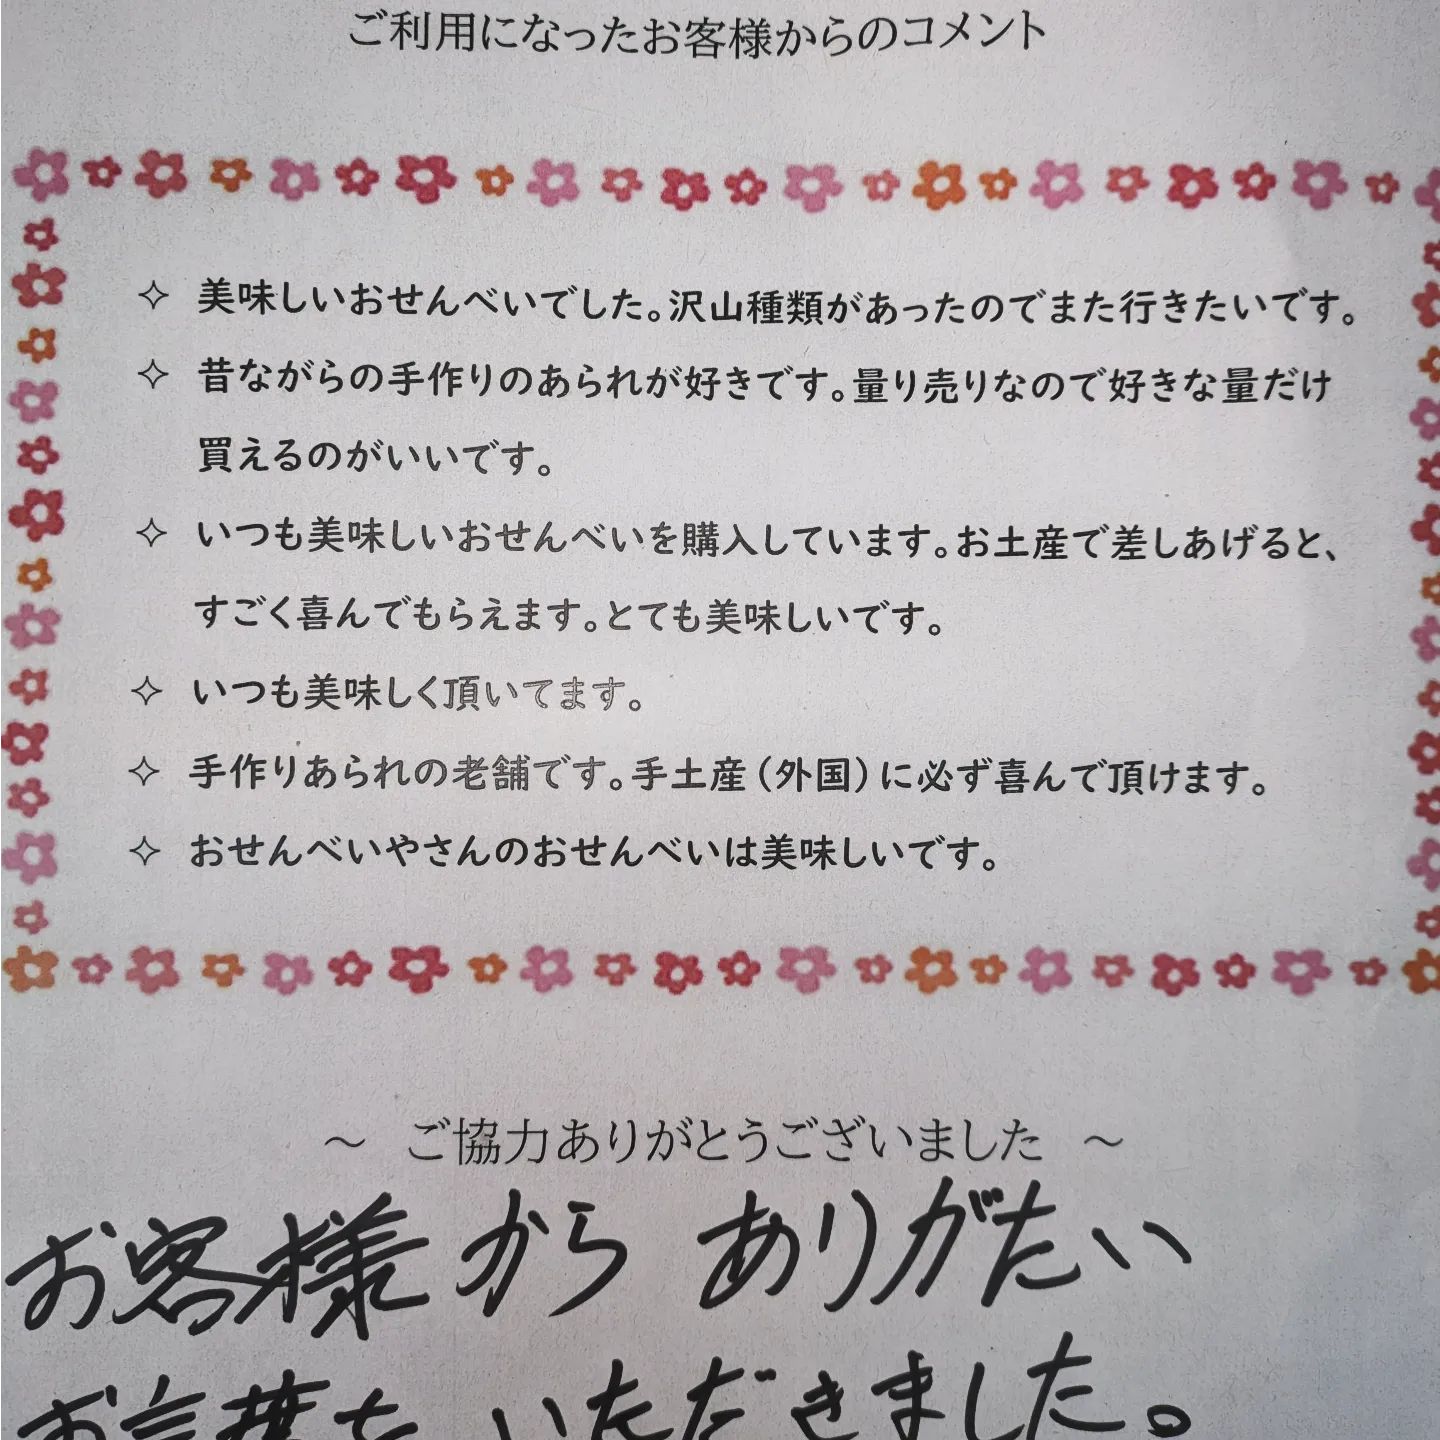 ご利用になったお客様からのコメント
✧ 美味しいおせんべいでした。沢山種類があったのでまた行きたいです。
✧ 昔ながらの手作りのあられが好きです。量り売りなので好きな量だけ
買えるのがいいです。
✧ いつも美味しいおせんべいを購入しています。お土産で差しあげると、
すごく喜んでもらえます。とても美味しいです。
✧ いつも美味しく頂いてます。
✧ 手作りあられの老舗です。手土産（外国）に必ず喜んで頂けます。
✧ おせんべいやさんのおせんべいは美味しいです。
～ ご協力ありがとうございました ～
お客様から ありがたい
お言葉を いただきました。